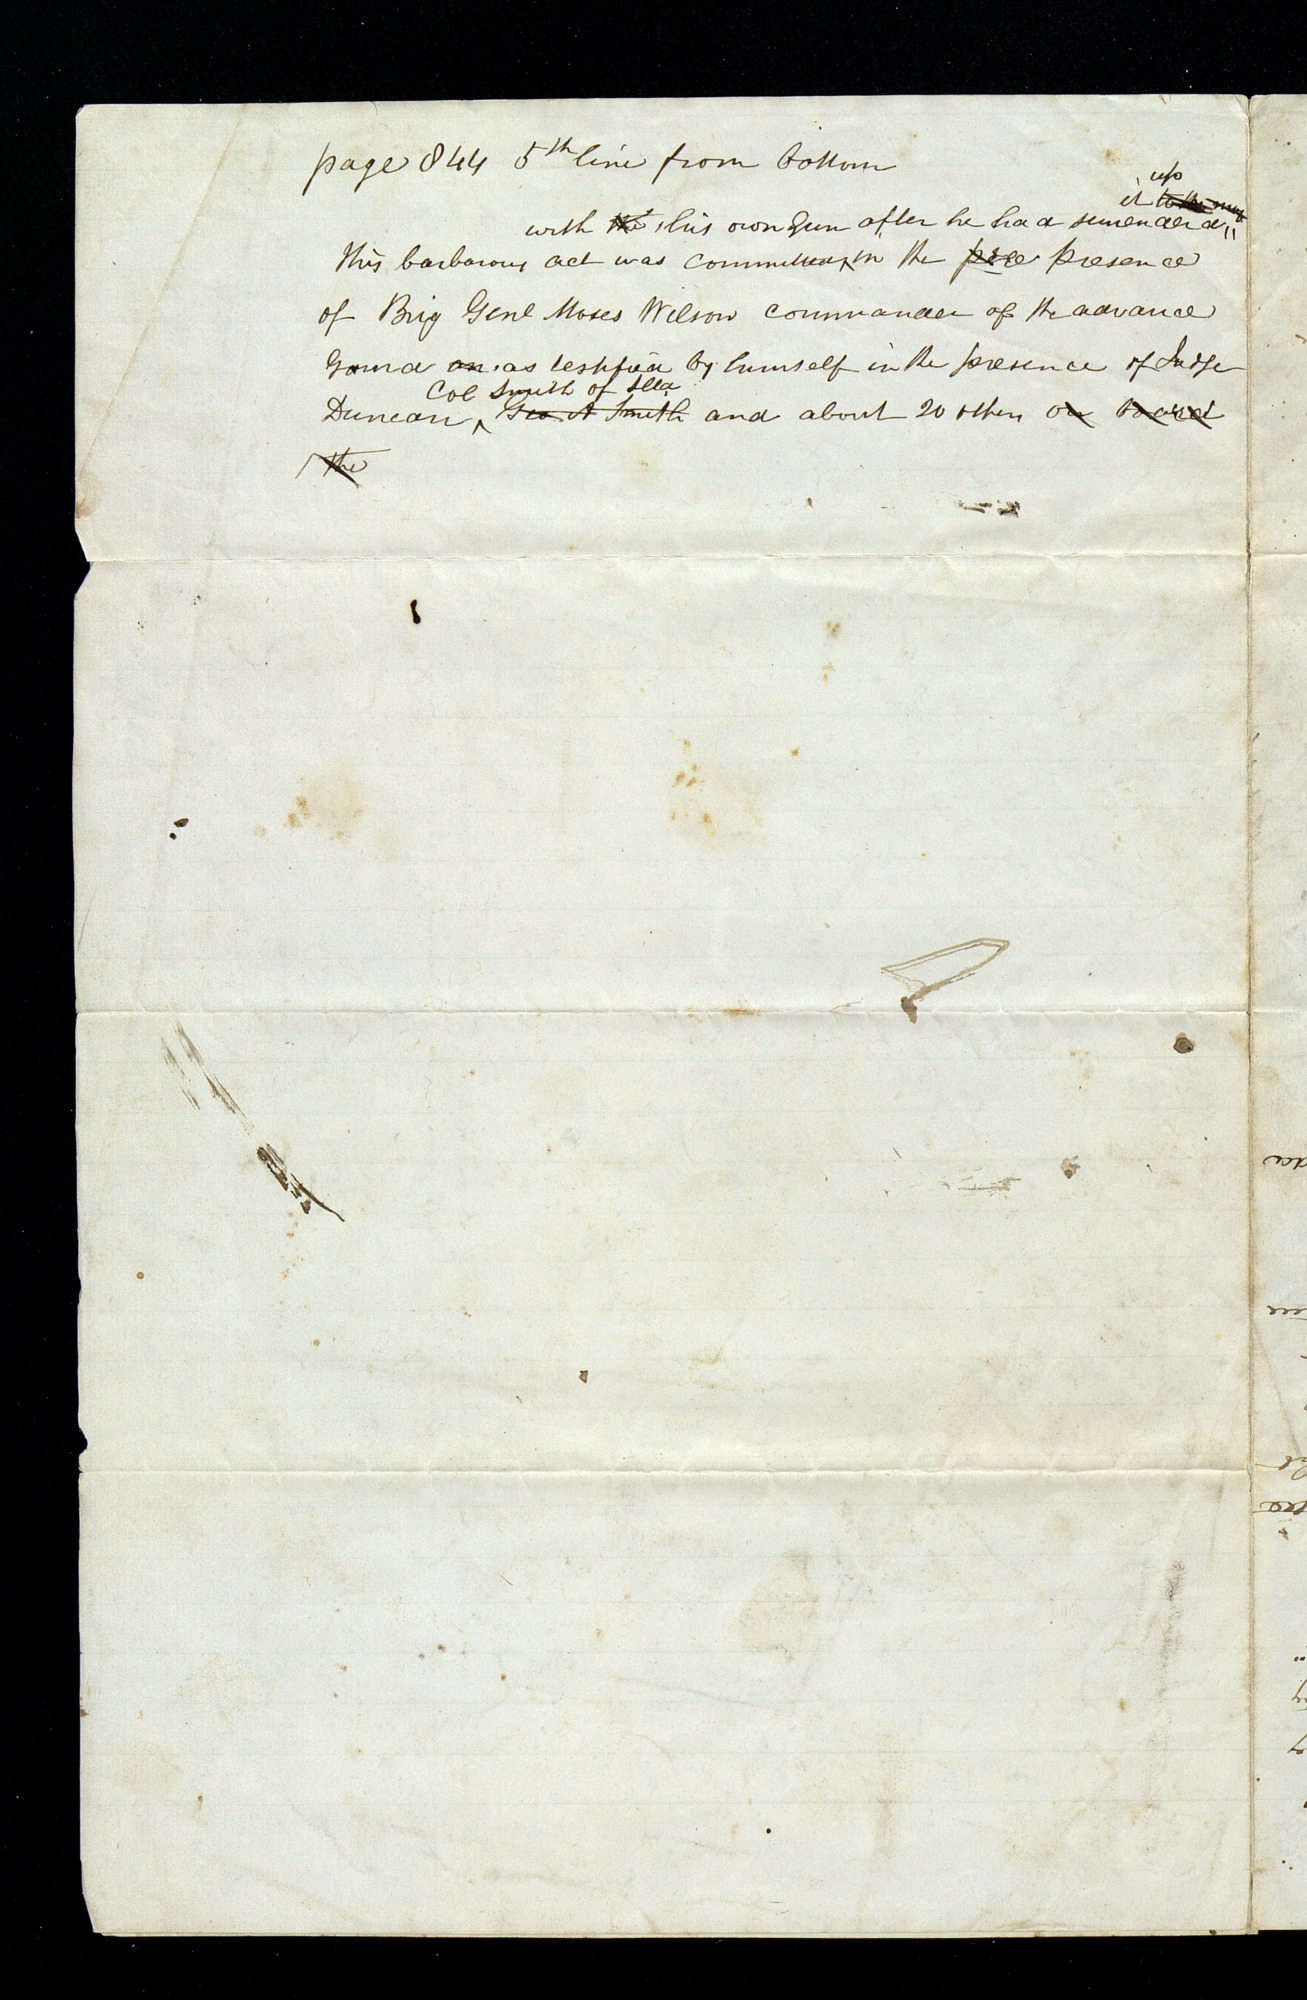 page 844 5th line from bottom
up
it to the
with the his own Gun after he had surrendered
this barbarous act was committed in the pre presence
of Brig Genl Moses Wilson commander of the advance
Gaurd on as testified by himself in the presence of Judge
Col Smith of Illa
Duncan, Geo A Smith and about 20 others on board
the